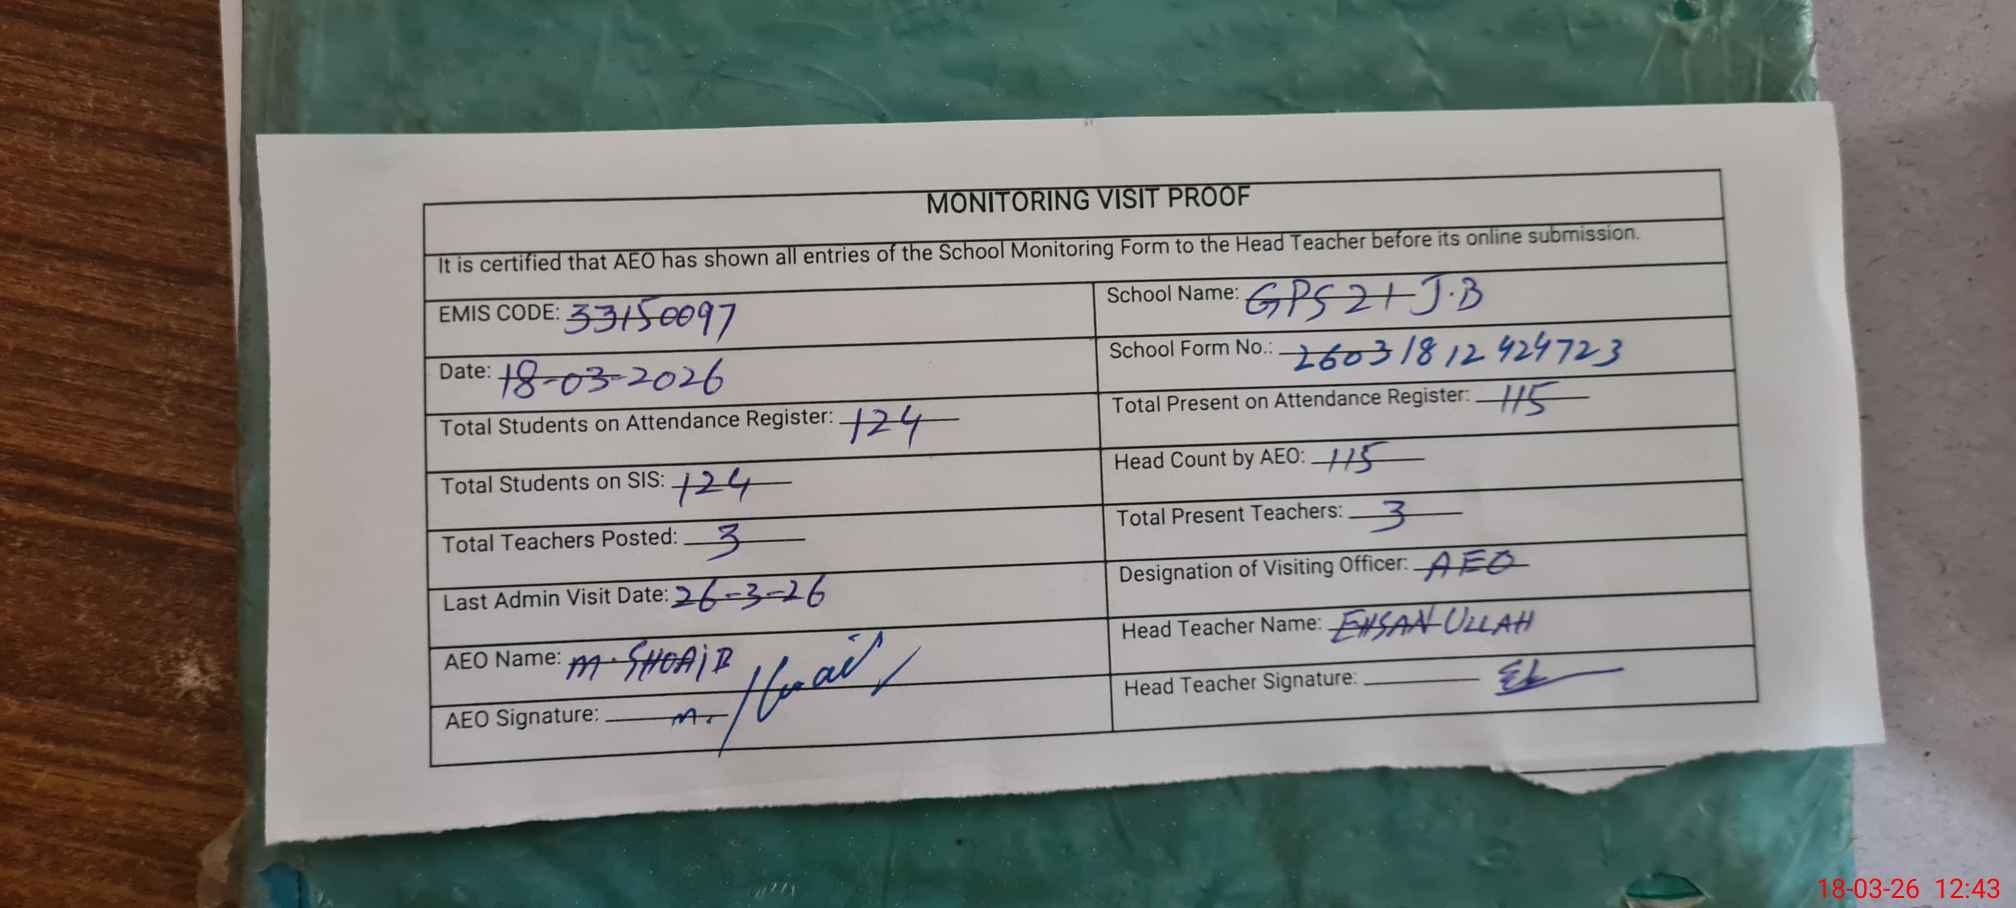 MONITORING VISIT PROOF
It is certified that AEO has shown all entries of the School Monitoring Form to the Head Teacher before its online submission.
EMIS CODE: 33150097
School Name: GPS 21 J.B
Date: 18-03-2026
School Form No.: 26031812424723
Total Students on Attendance Register: 124
Total Present on Attendance Register: 115
Total Students on SIS: 124
Head Count by AEO: 115
Total Teachers Posted: 3
Total Present Teachers: 3
Last Admin Visit Date: 26-3-26
Designation of Visiting Officer: AEO
AEO Name: M. SHOAIB
Head Teacher Name: EHSAN ULLAH
AEO Signature: M.
Head Teacher Signature:
18-03-26 12:43